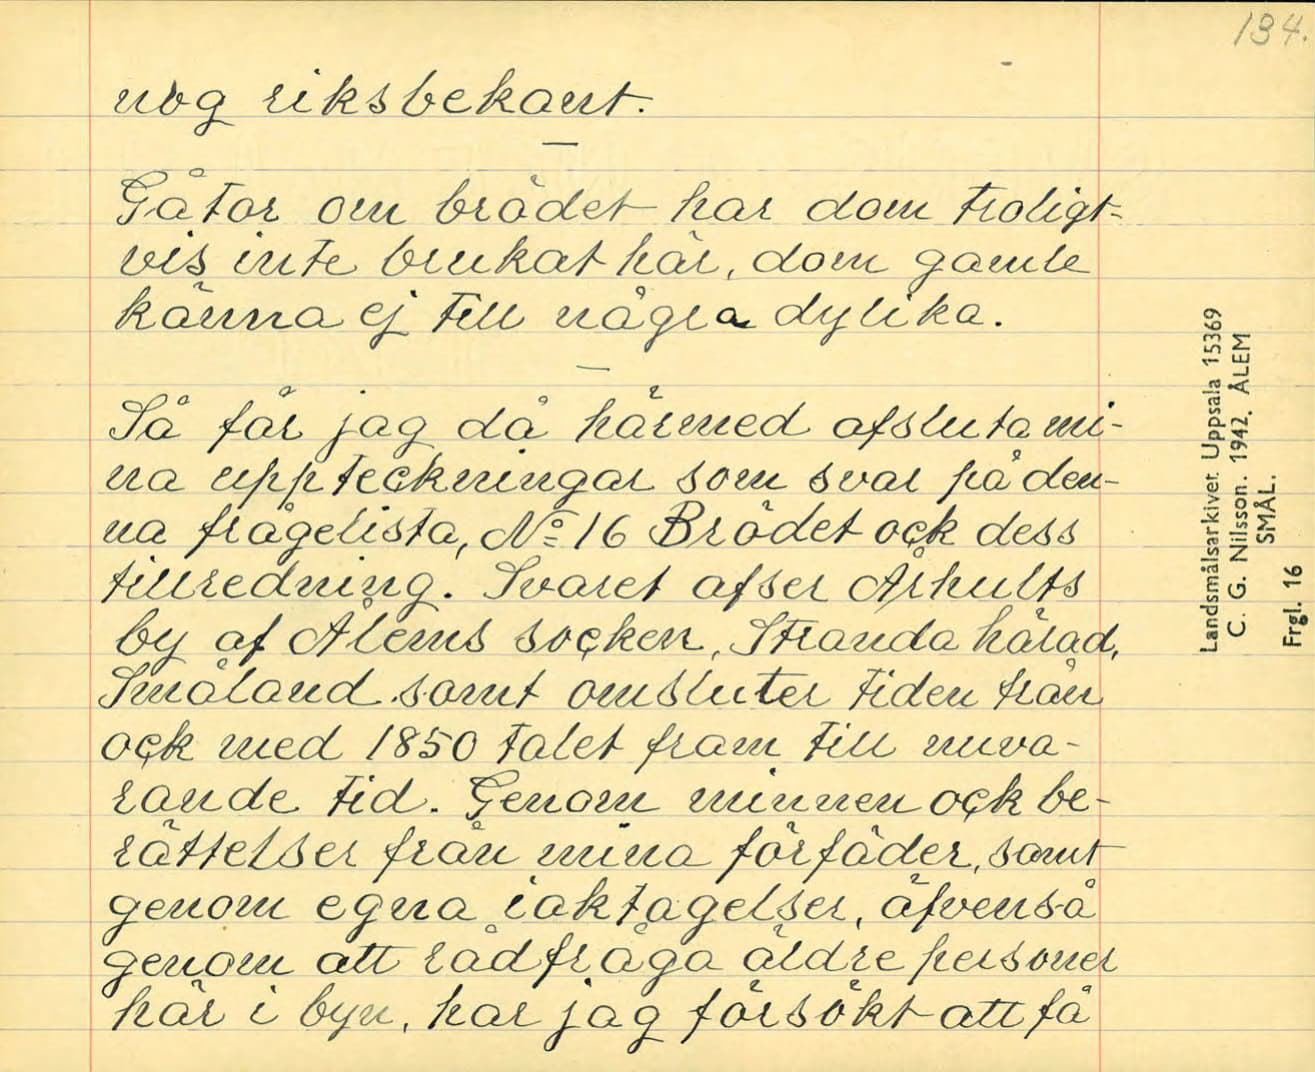 134.
nog riksbekant.
—
Gåtor om brödet har dom troligt-
vis inte brukat här, dom gamle
känna ej till några dylika.
—
Så får jag då härmed afsluta mi-
na uppteckningar som svar på den-
na frågelista, No 16 Brödet ock dess
tillredning. Svaret afser Arhults
by af Ålems socken, Stranda härad,
Småland samt omsluter tiden från
ock med 1850 talet fram till nuva-
rande tid. Genom minnen ock be-
rättelser från mina förfäder, samt
genom egna iaktagelser, äfvenså
genom att rådfråga äldre personer
här i byn, har jag försökt att få
Landsmålsarkivet Uppsala 15369
C. G. Nilsson. 1942. ÅLEM
SMÅL.
Frgl. 16